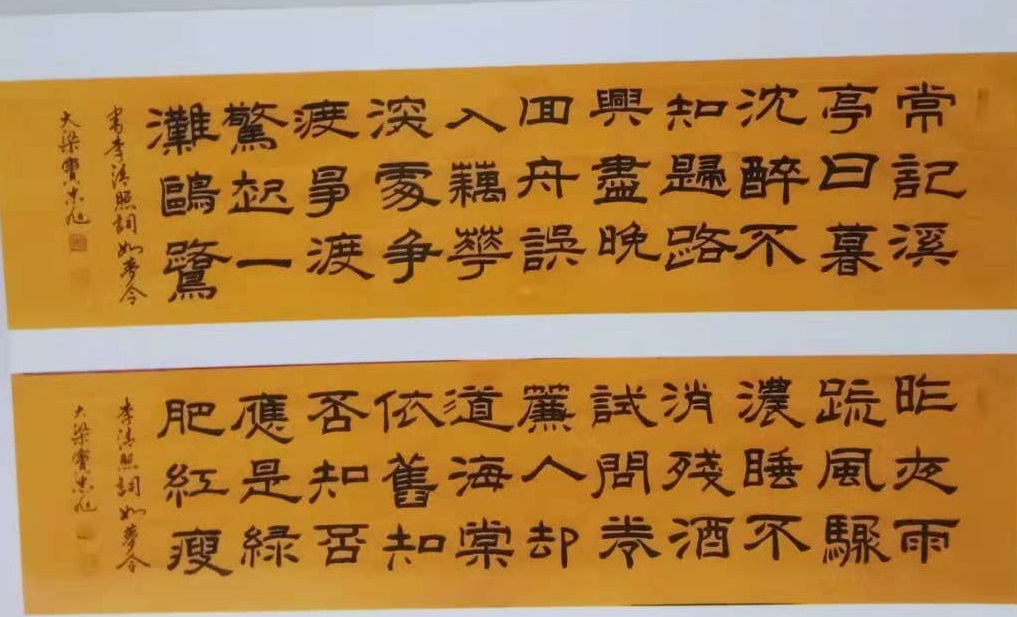 常記溪
亭日暮
沈醉不
知歸路
興盡晚
回舟誤
入藕華
深處爭
渡爭渡
驚起一
灘鷗鷺
書李清照詞如夢令
大梁
昨夜雨
疏風驟
濃睡不
消殘酒
試問卷
簾人却
道海棠
依舊知
否知否
應是緑
肥紅瘦
李清照詞如夢令
大梁